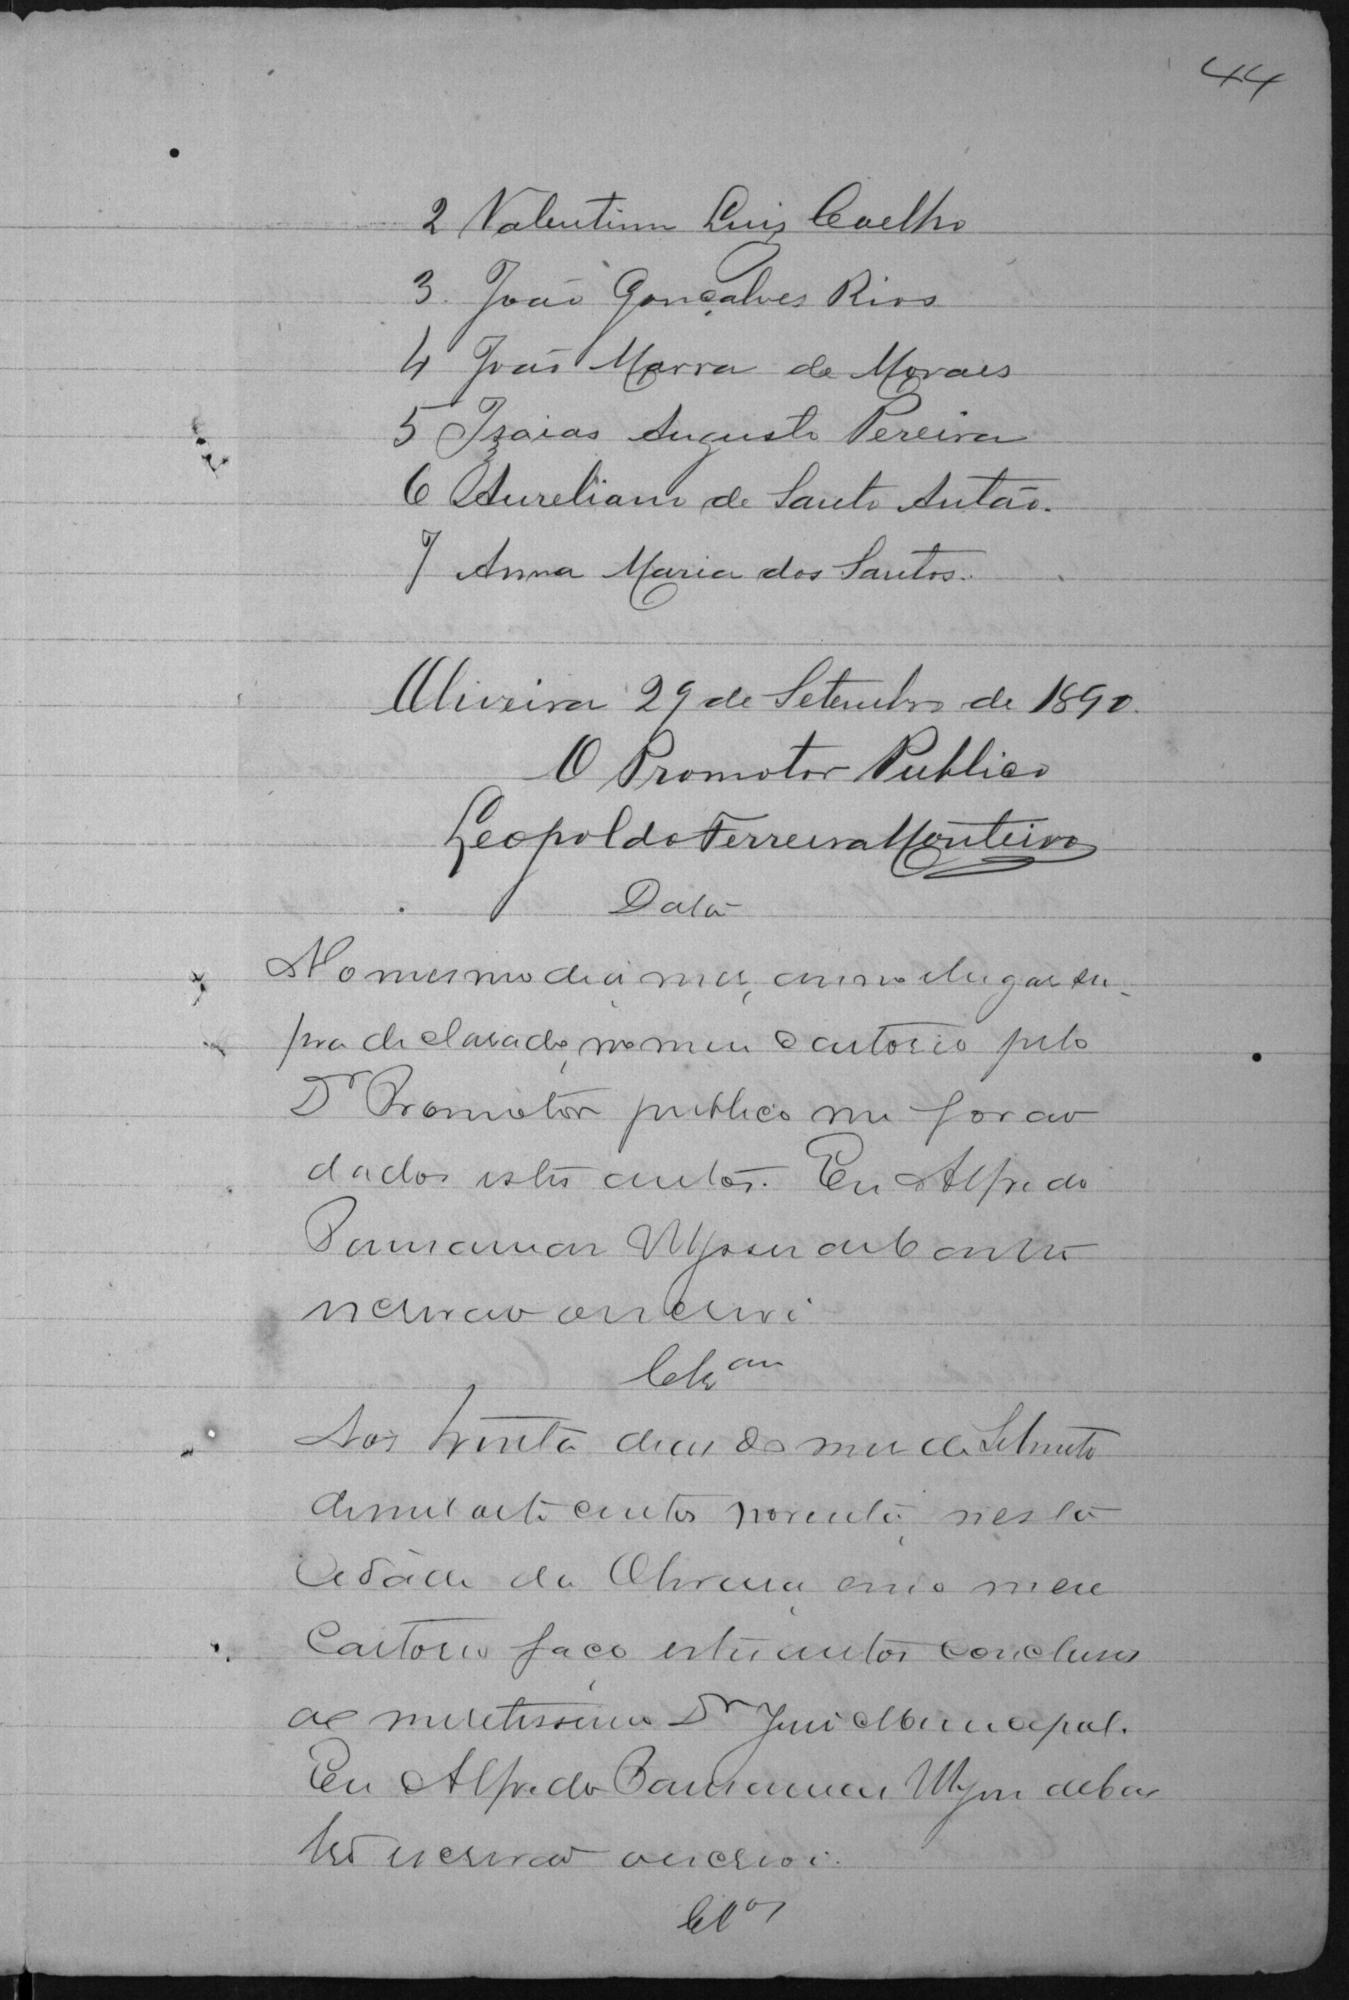 44
2 Valentim Luis Coelho
3. João Gonçalves Rios
4 João Marra de Moraes
5 Izaias Augusto Pereira
6 Aureliano de Santo Antão.
7 Anna Maria dos Santos.
Oliveira 29 de Setembro de 1890.
O Promotor Publico
Leopoldo Ferreira Monteiro
Data
No mesmo dia mez, anno e lugar su-
pra declarado, no meu cartorio pelo
Dr Promotor publico me forão
dados estes autos. Eu Alfredo
de Castro
escrivão o escrevi
Clsam
Aos trinta dias do mez de Setembro
de mil oito centos noventa, nesta
Cidade da Oliveira, em o meu
Cartorio faço estes autos conclusos
ao meretissimo Dr Juis Municipal.
Eu Alfredo de Cas
tro escrivão o escrevi.
Clos